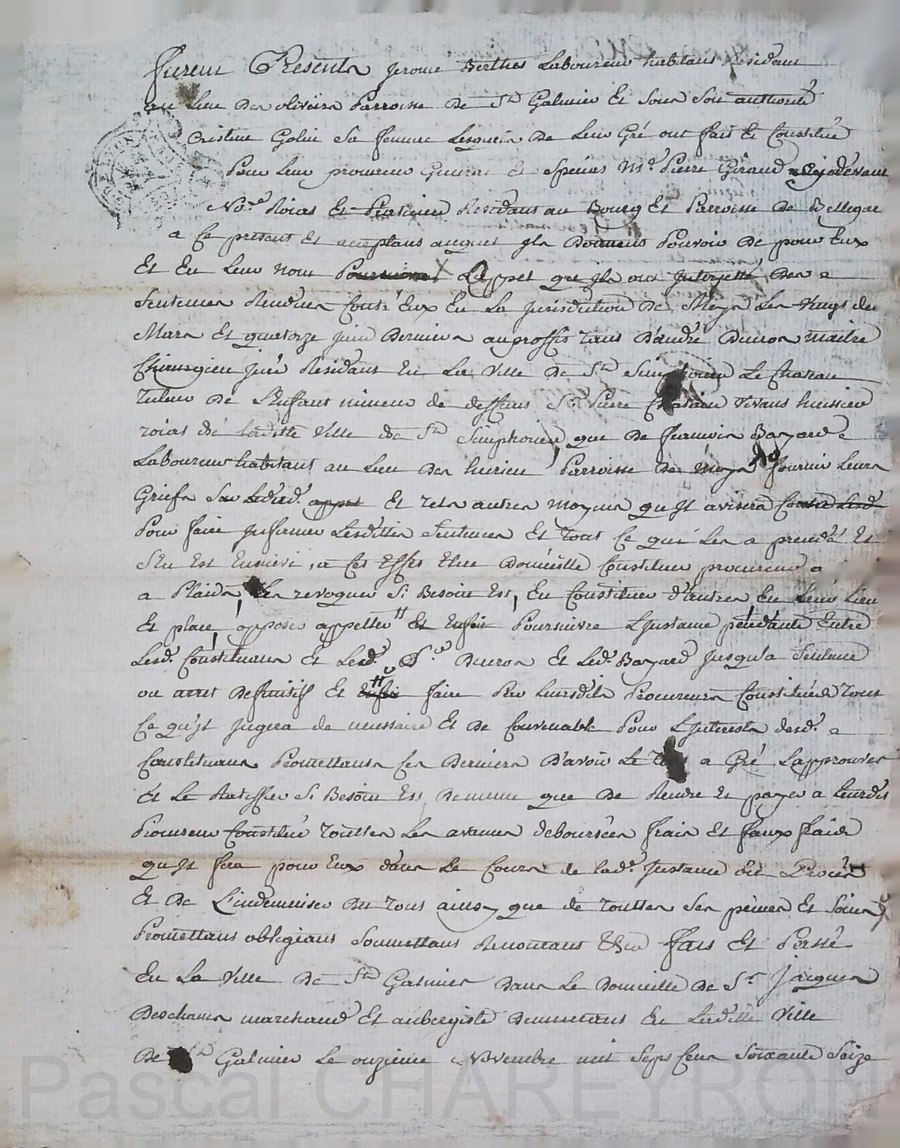 furent Presents Jerome Berthet Laboureur habitant residant
au Lieu des olivers Parroisse de St Galmier Et sous son authorité
Cristine Golin Sa femme Lesquels De Leur Gré ont fait Et Constitué
Pour Leur procureur General Et Special Me Pierre Giraud cy devant
Nore Roial Et Praticien Residant au Bourg Et Parroisse De Bellegar
a Ce present Et acceptant auquel Ils Donnent Pouvoir De pour Eux
Et En Leur Nom Poursuivre L'appel que Ils ont Interjetté Des
Sentences Rendues Contr'Eux En La jurisdiction De Meys Les Vingt de
Mars Et quatorze juin Derniers au proffit tant D'andré Buiron maitre
Chirurgien juré Residant En La Ville De St Simphorien Le Chateau
tuteur De L'Enfant mineur de deffunt Sr Pierre vivant huissier
roial de laditte Ville de St Simphorien que De Bazard
Laboureur habitant au Lieu Des Parroisse De Meys fournir Leurs
Griefs Sur Led. appel Et tels autres moyens qu'Il avisera
Pour faire Infirmer Lesdittes Sentences Et tout Ce qui Les a precedé Et
S'En Est Ensuivi, a Cet Effet Elire Domicille Constituer procureur
a Plaids Les revoquer Si Besoin Est, En Constituer d'autres En Leur Lieu
Et place, opposer appeller Et Enfin Poursuivre L'Instance pendante Entre
Lesd. Constituans Et Lesd. Srs Buiron Et Led. Bazard Jusqu'a Sentence
ou arret Deffinitif Et faire Par Leursdits Procureurs Constitués Tout
Ce qu'Il jugera de necessaire Et De Convenable Pour L'Interest desd.
Constituans Promettans Ces Derniers D'avoir Le Tout a Gré, L'approuver
Et Le Ratiffier Si Besoin Est De meme que De Rendre Et payer a Leurdit
Procureur Constitué Touttes Les avances deboursées frais Et faux fraix
qu'Il fera pour Eux dans Le Cours de lad. Instance Et Procès
Et De L'indemniser Du Tout ainsy que de Touttes Ses peines Et Soins
Promettans obligeans Soumettans Renonçans &a fait Et Passé
En La Ville De St Galmier Dans Le Domicille De Sr Jacques
Deschamps marchand Et aubergiste Demeurant En Laditte Ville
De St Galmier Le onzieme Novembre mil Sept Cent Soixante Seize
Pascal CHAREYRON